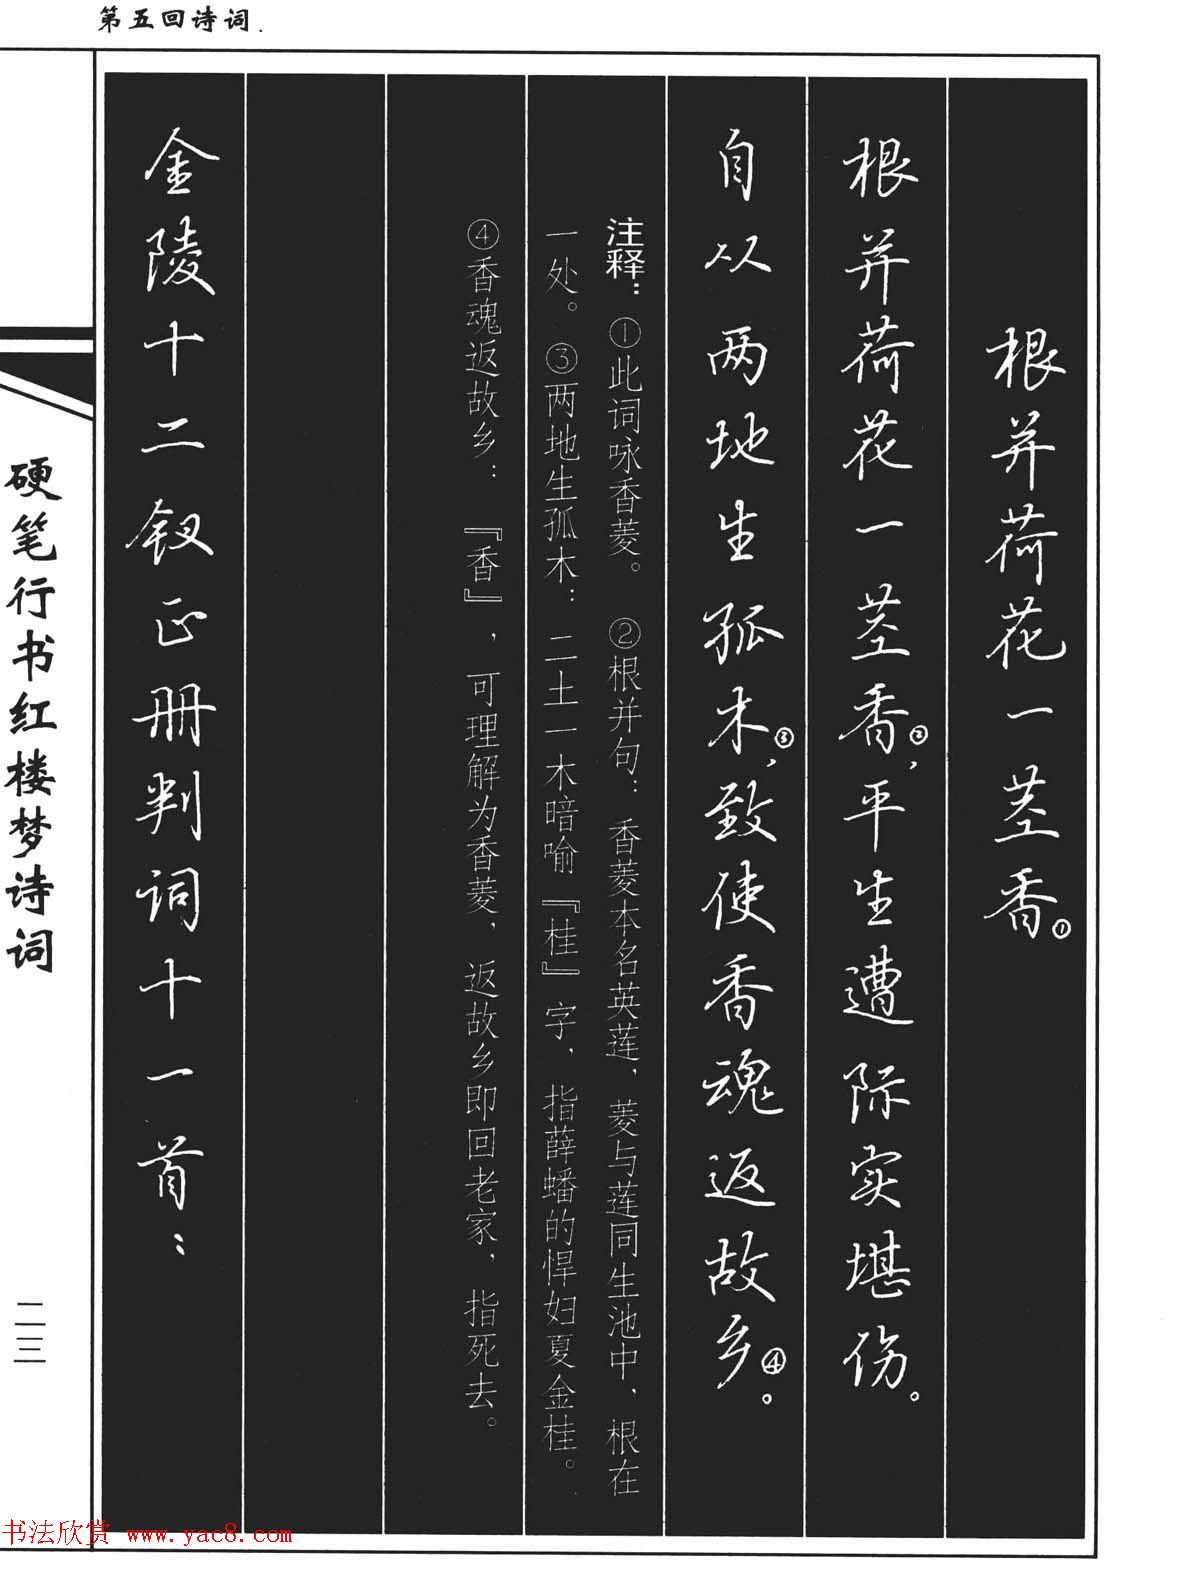 第五回诗词
根并荷花一茎香①
根并荷花一茎香②,平生遭际实堪伤。
自从两地生孤木③,致使香魂返故乡④。
注释：①此词咏香菱。②根并句：香菱本名英莲，菱与莲同生池中，根在
一处。③两地生孤木：二土一木暗喻『桂』字，指薛蟠的悍妇夏金桂。
④香魂返故乡：『香』，可理解为香菱，返故乡即回老家，指死去。
金陵十二钗正册判词十一首：
硬笔行书红楼梦诗词
二三
书法欣赏 www.yac8.com